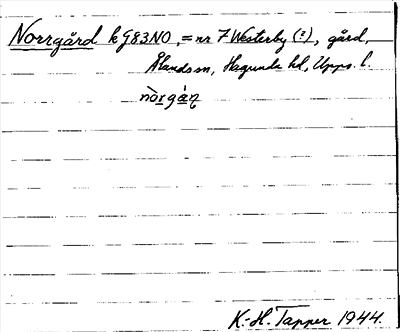 Norrgård k G83NO, = nr 7 Westerby (?), gård,
Ålands sn, Hagunda hd, Upps. l.
nòrgá̱ɳ
K.-H. Tapper 1944.